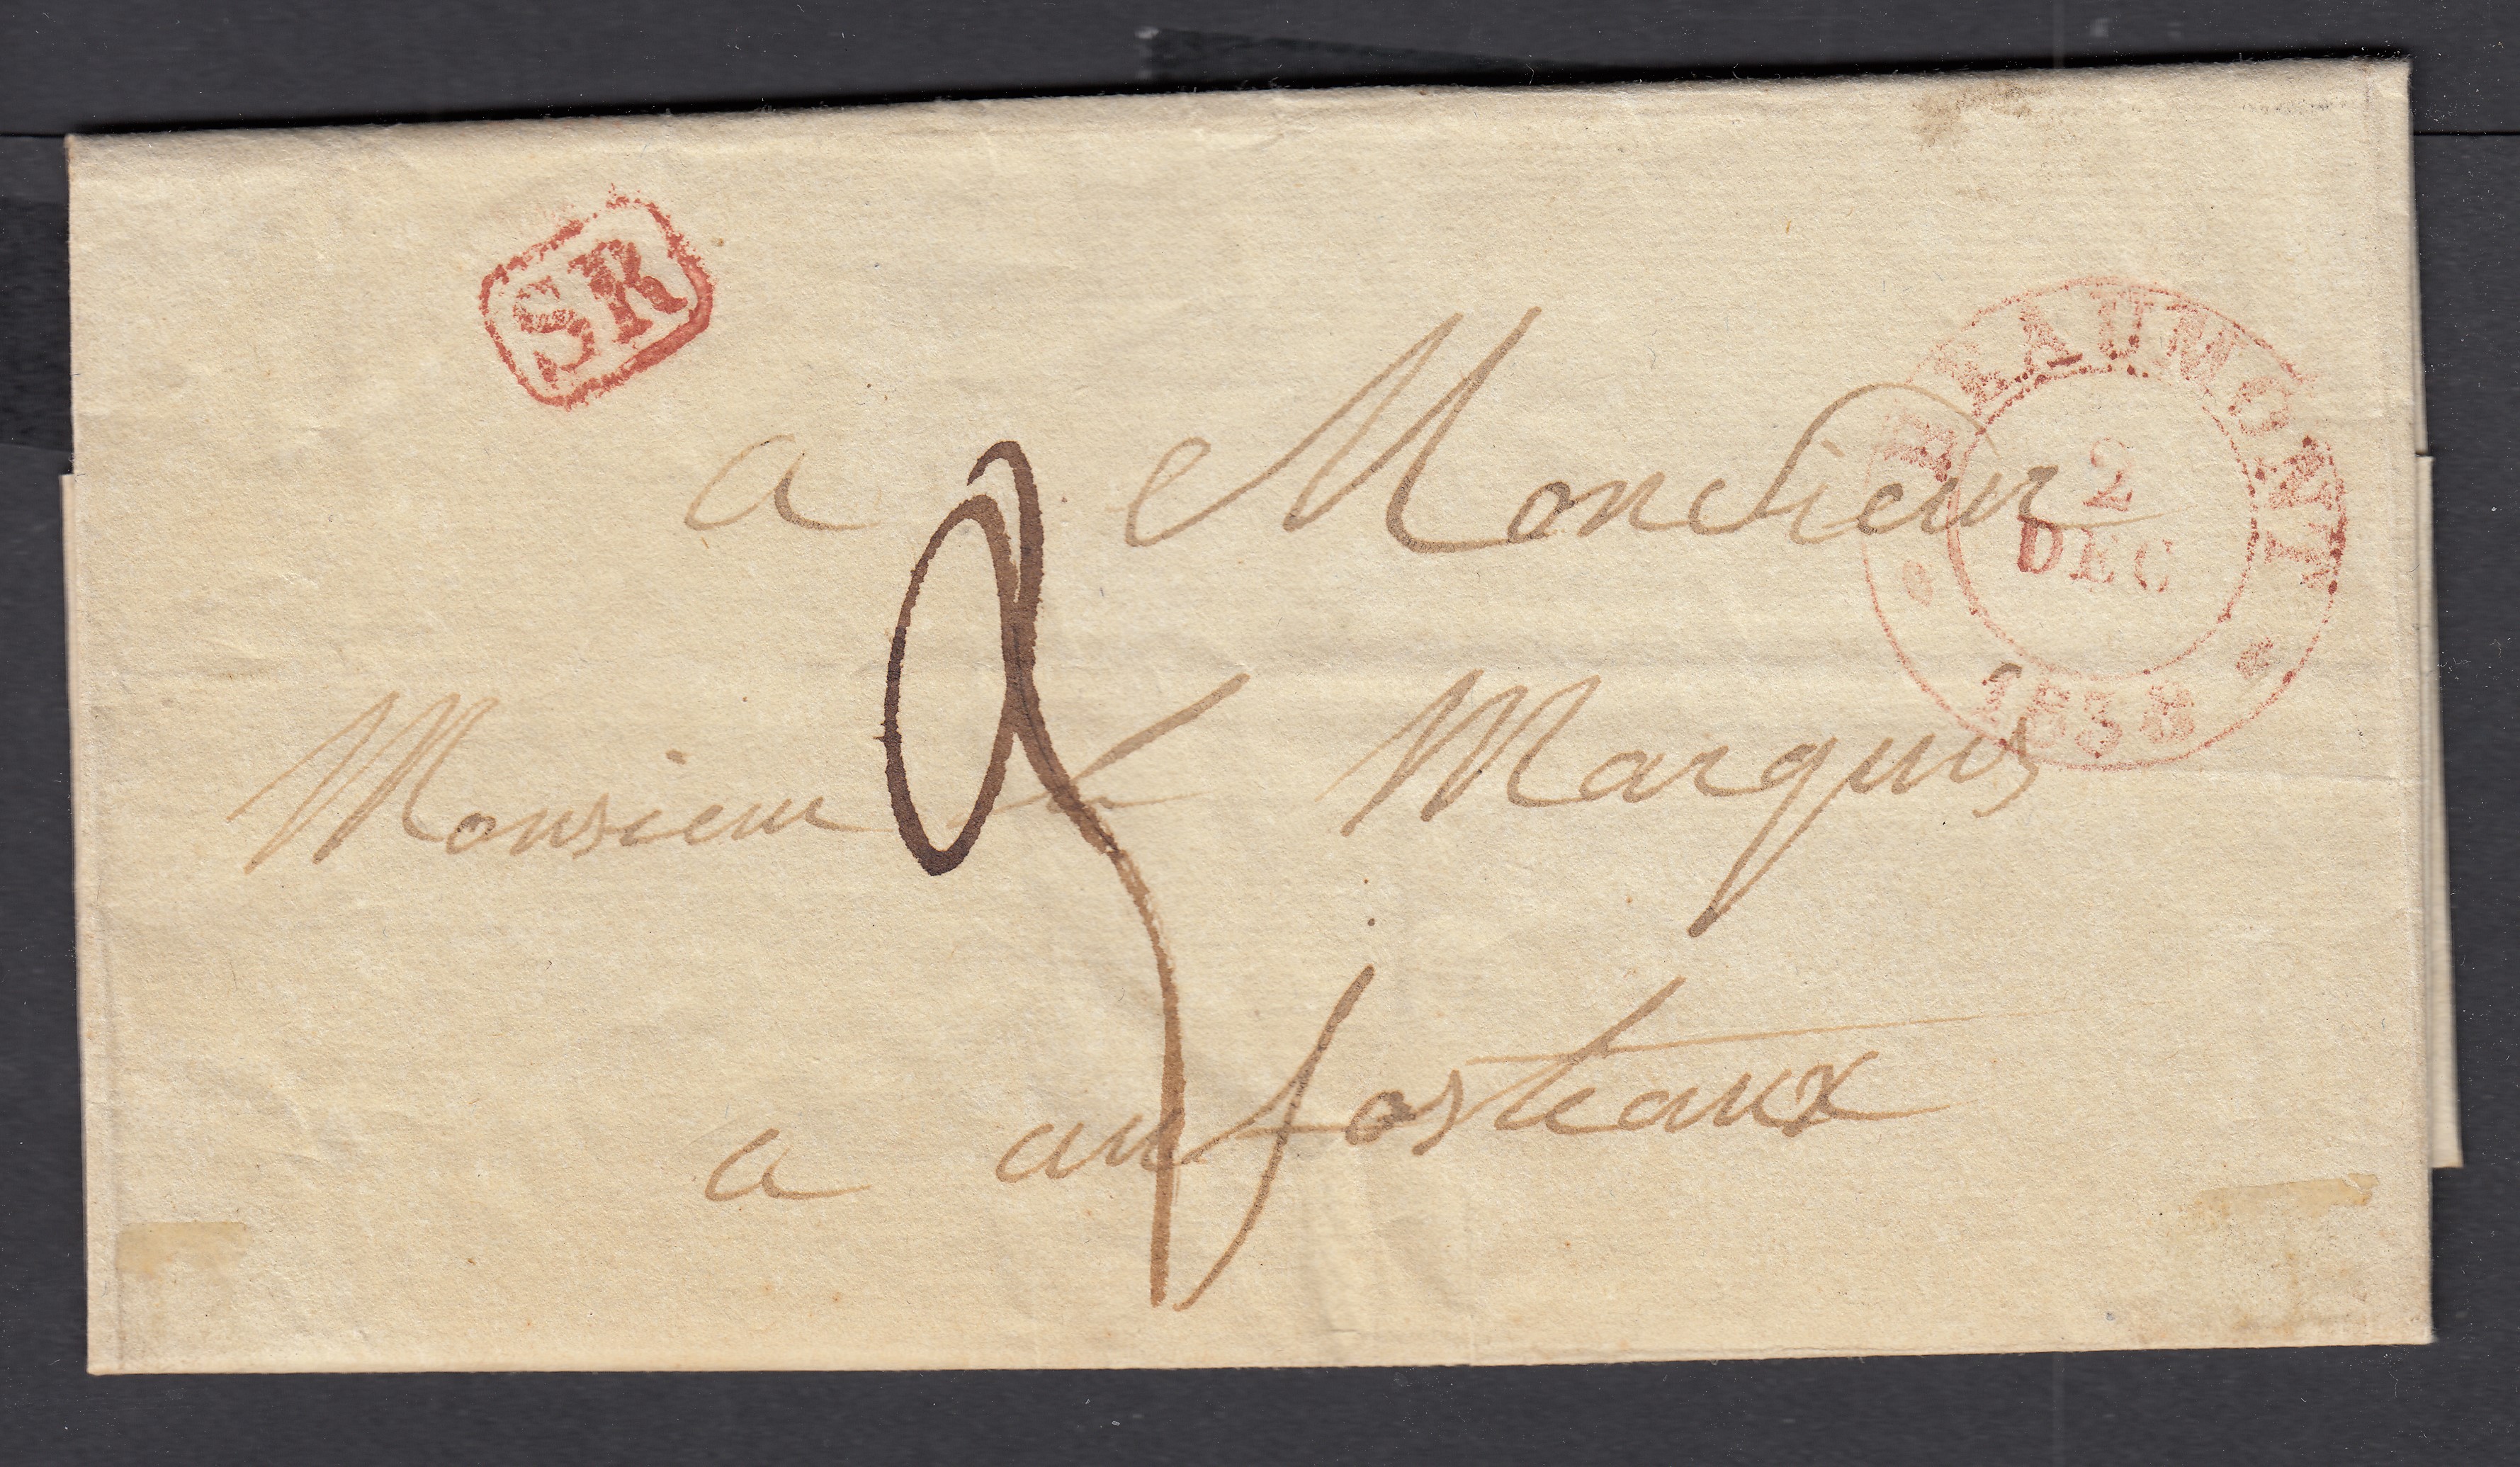 SR
BEAUMONT
2
DEC
1838
a Monsieur
Monsieur le Marquis
a anfosteaux